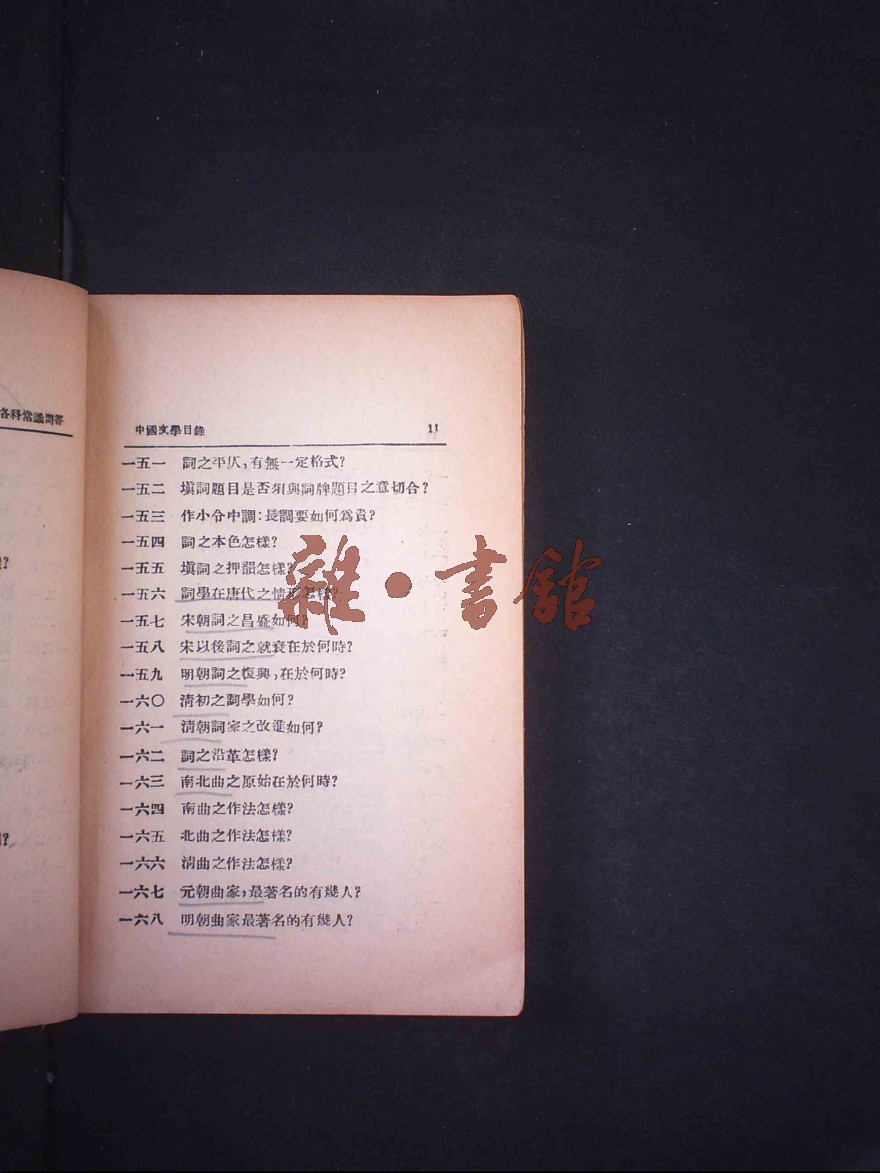 各科常識問答
中國文學目錄 11
一五一 詞之平仄,有無一定格式?
一五二 塡詞題目是否須與詞牌題目之意切合?
一五三 作小令中調:長調要如何爲貴?
一五四 詞之本色怎樣?
一五五 塡詞之押韻怎樣?
一五六 詞學在唐代之情形怎樣?
一五七 宋朝詞之昌盛如何?
一五八 宋以後詞之就衰在於何時?
一五九 明朝詞之復興,在於何時?
一六〇 淸初之詞學如何?
一六一 淸朝詞家之改進如何?
一六二 詞之沿革怎樣?
一六三 南北曲之原始在於何時?
一六四 南曲之作法怎樣?
一六五 北曲之作法怎樣?
一六六 淸曲之作法怎樣?
一六七 元朝曲家,最著名的有幾人?
一六八 明朝曲家最著名的有幾人?
雜·書館